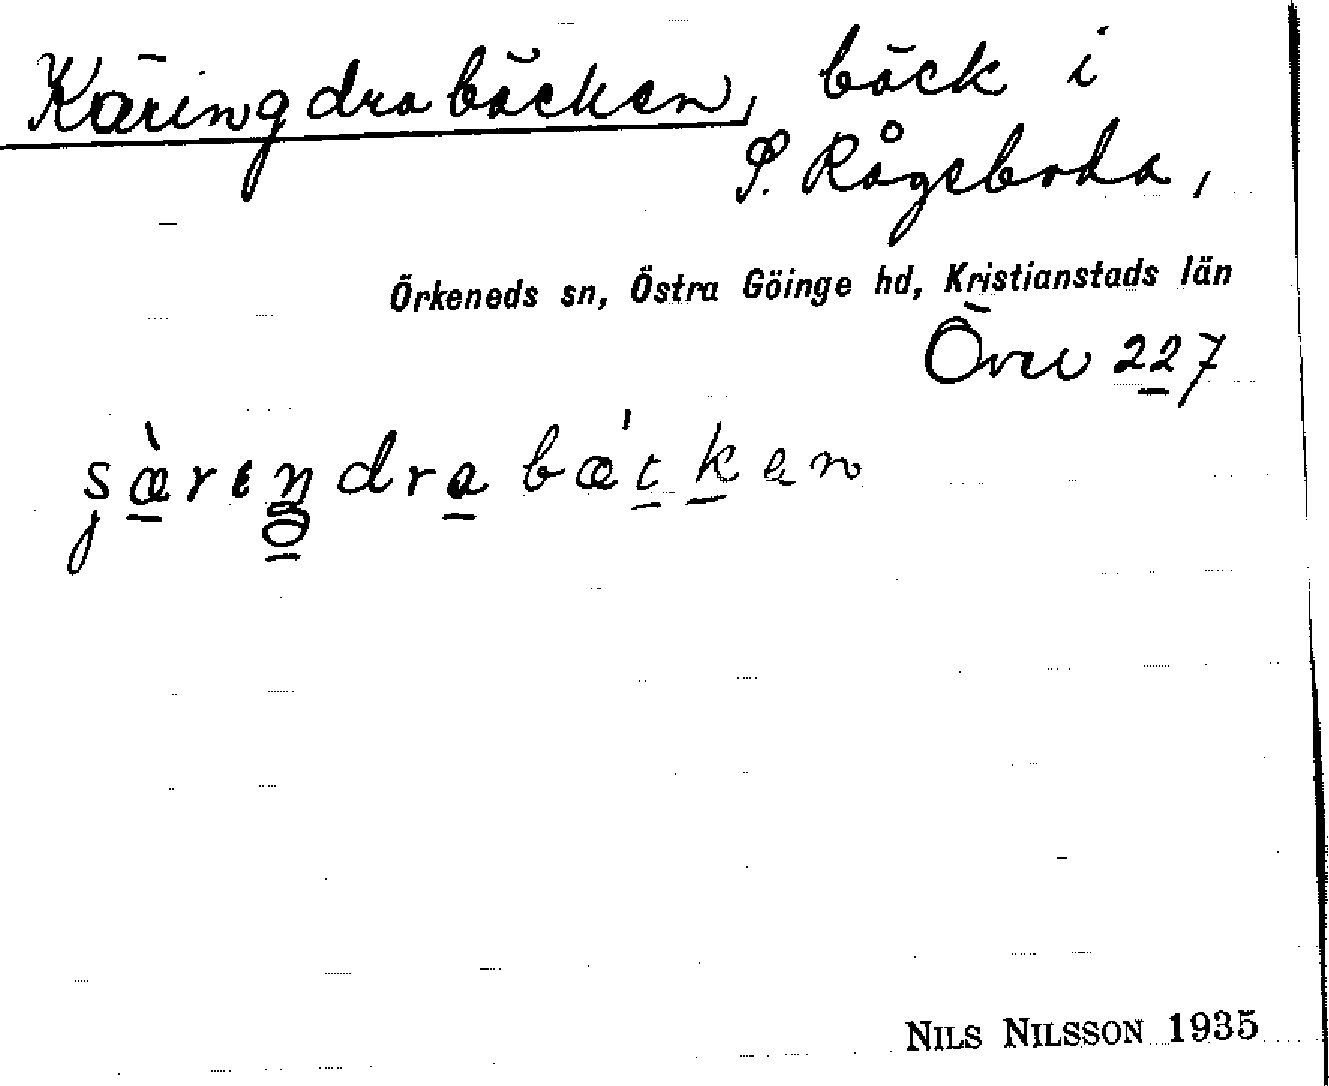 Käringdrabäcken, bäck i
S. Rågeboda,
Örkeneds sn, Östra Göinge hd, Kristianstads län
Övr 227
NILS NILSSON 1935